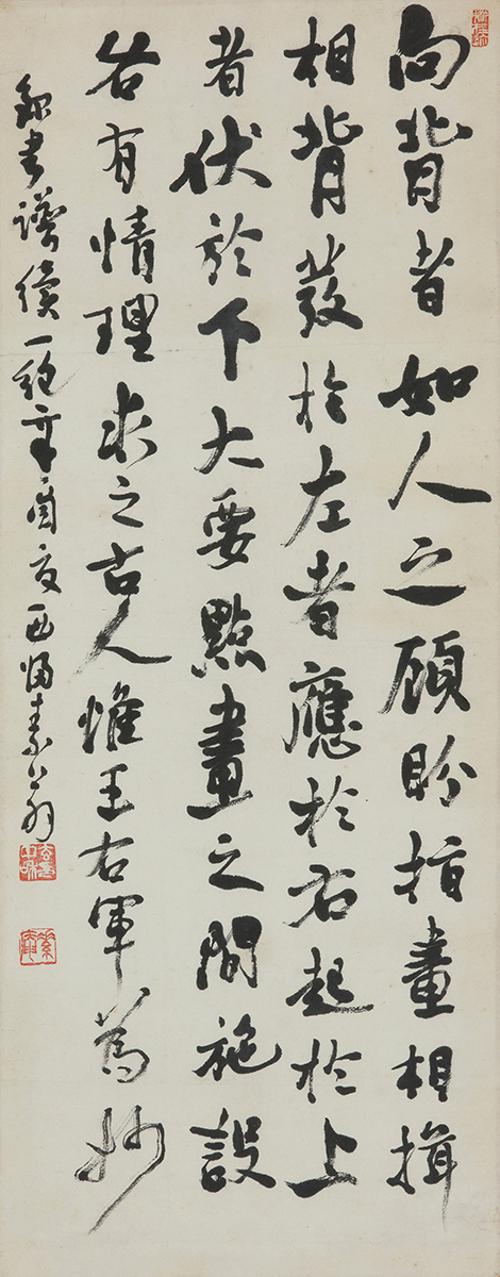 向背者如人之顧盼指畫相揖
相背發於左者應於右起於上
者伏於下大要點畫之間施設
各有情理求之古人惟王右軍為妙
錄書譜續一段辛酉夏